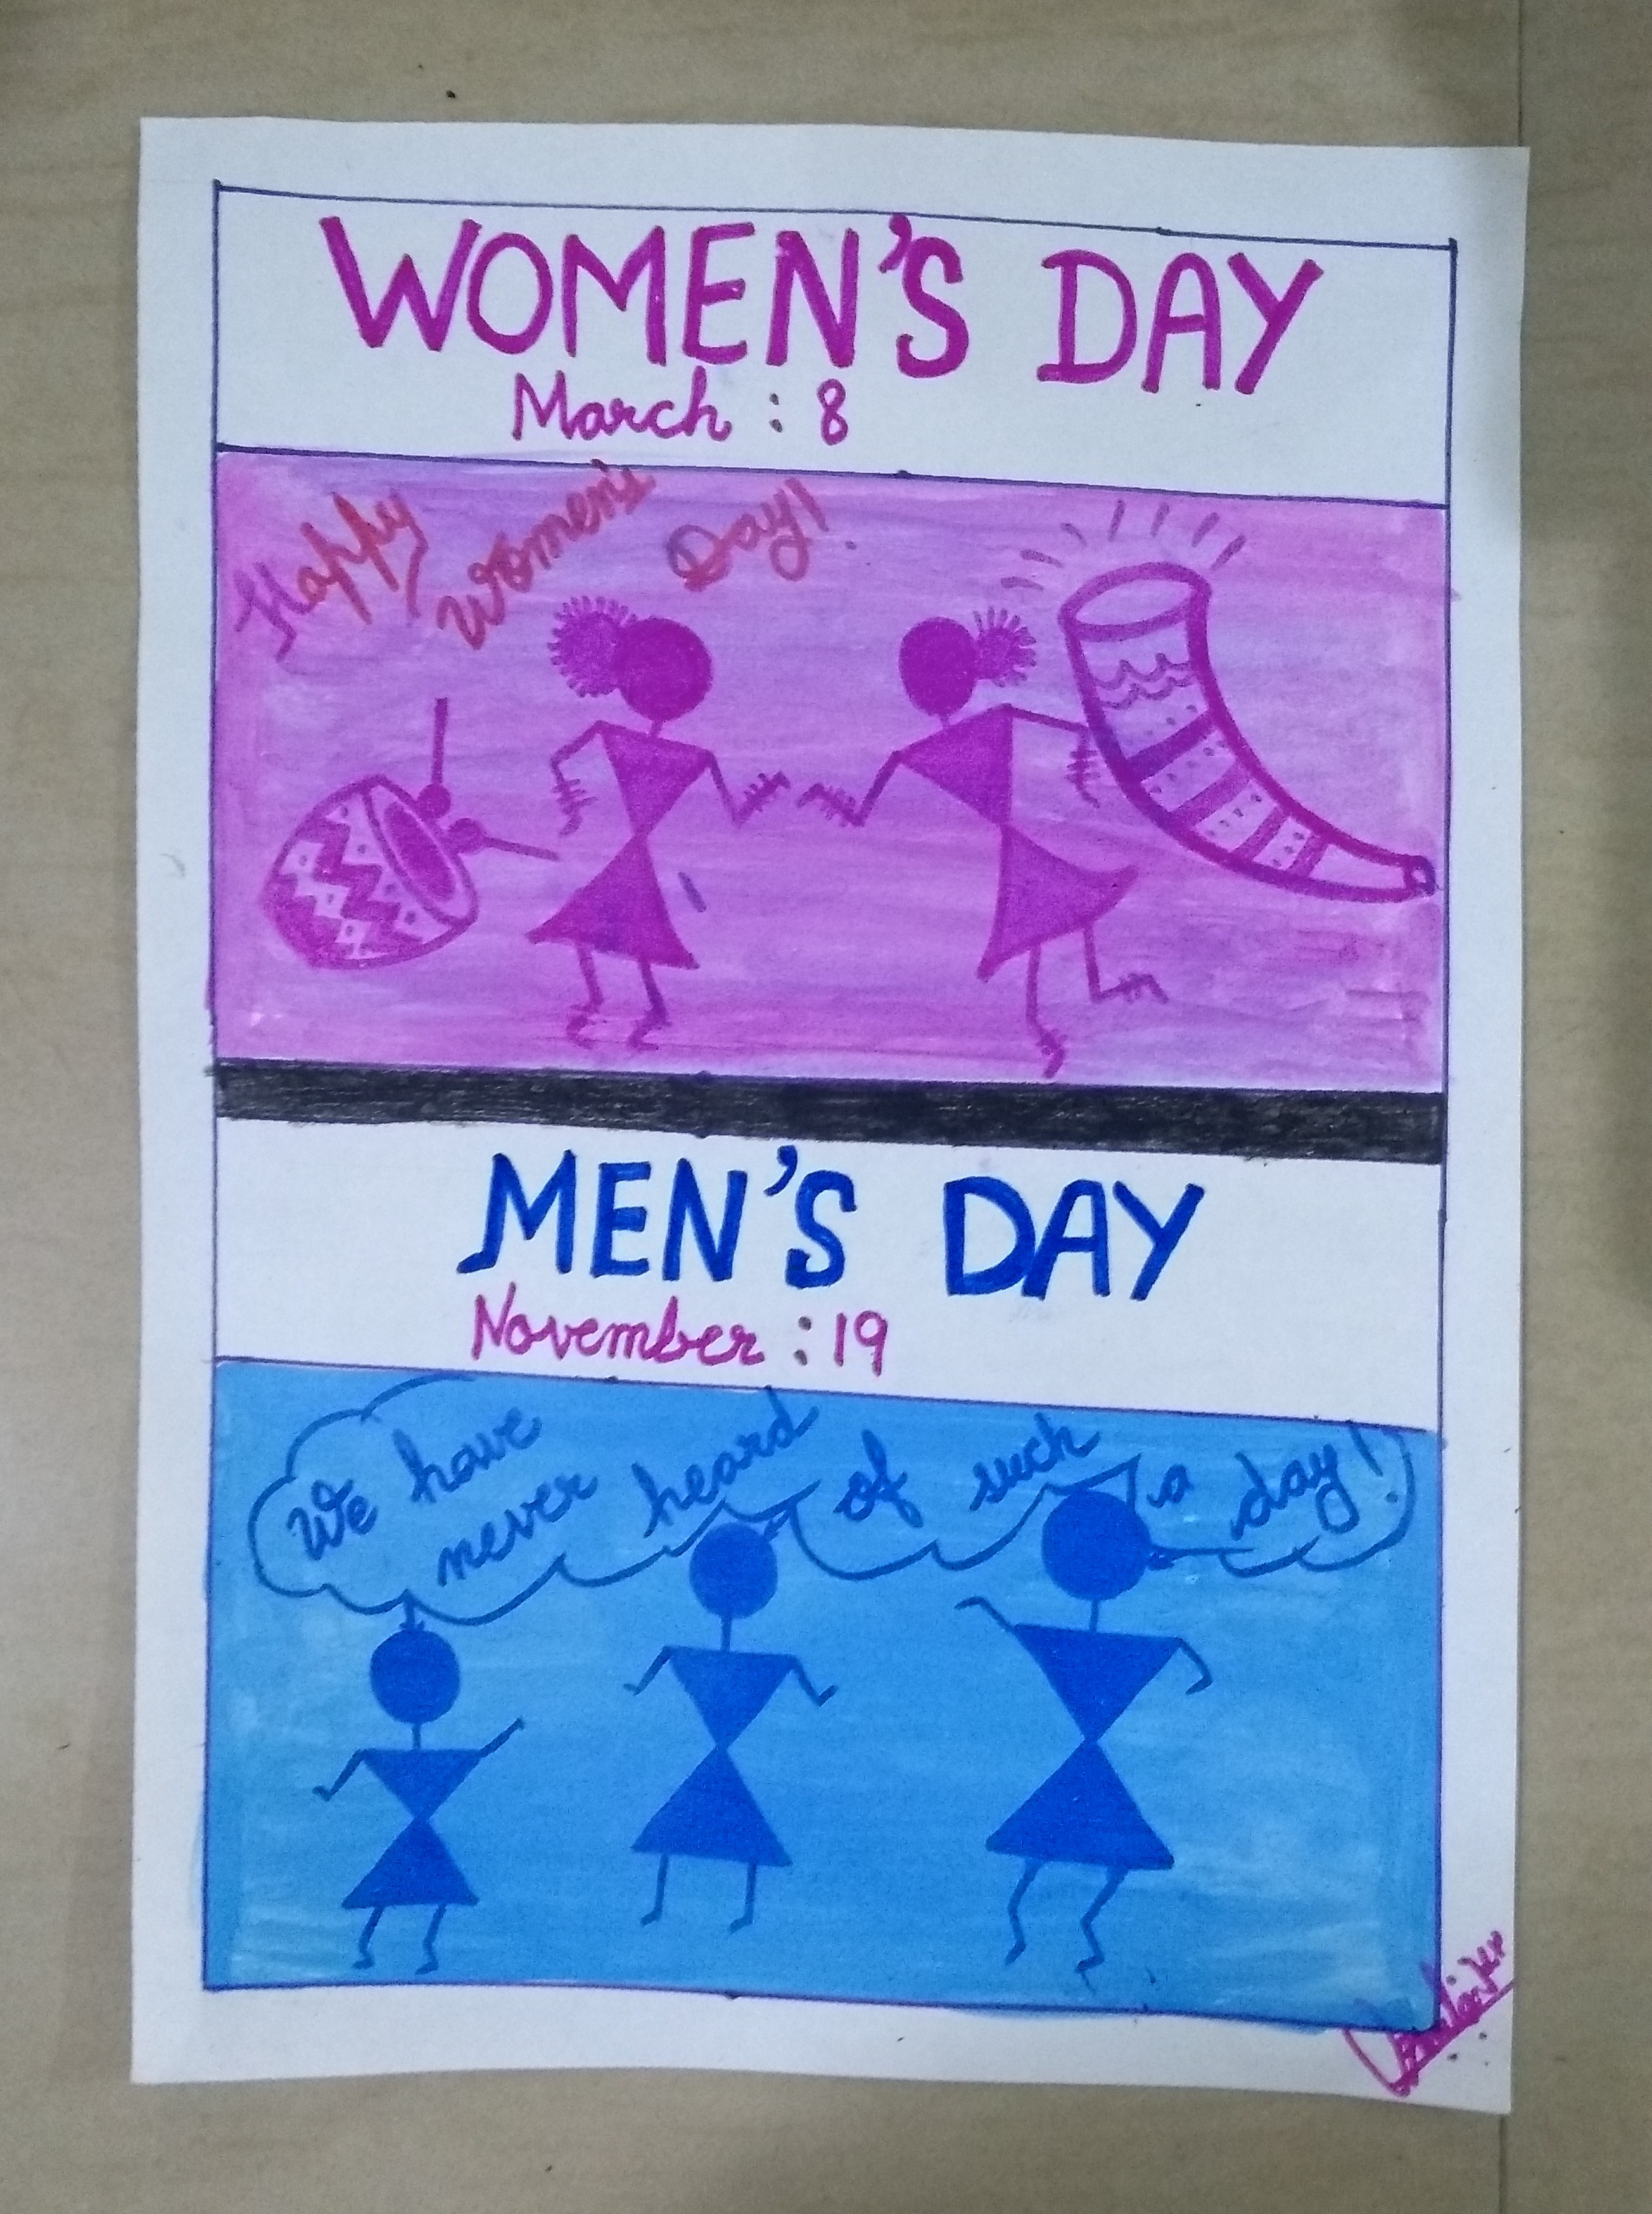 WOMEN'S DAY
March : 8
Happy Women's Day!
MEN'S DAY
November : 19
We have never heard of such a day!